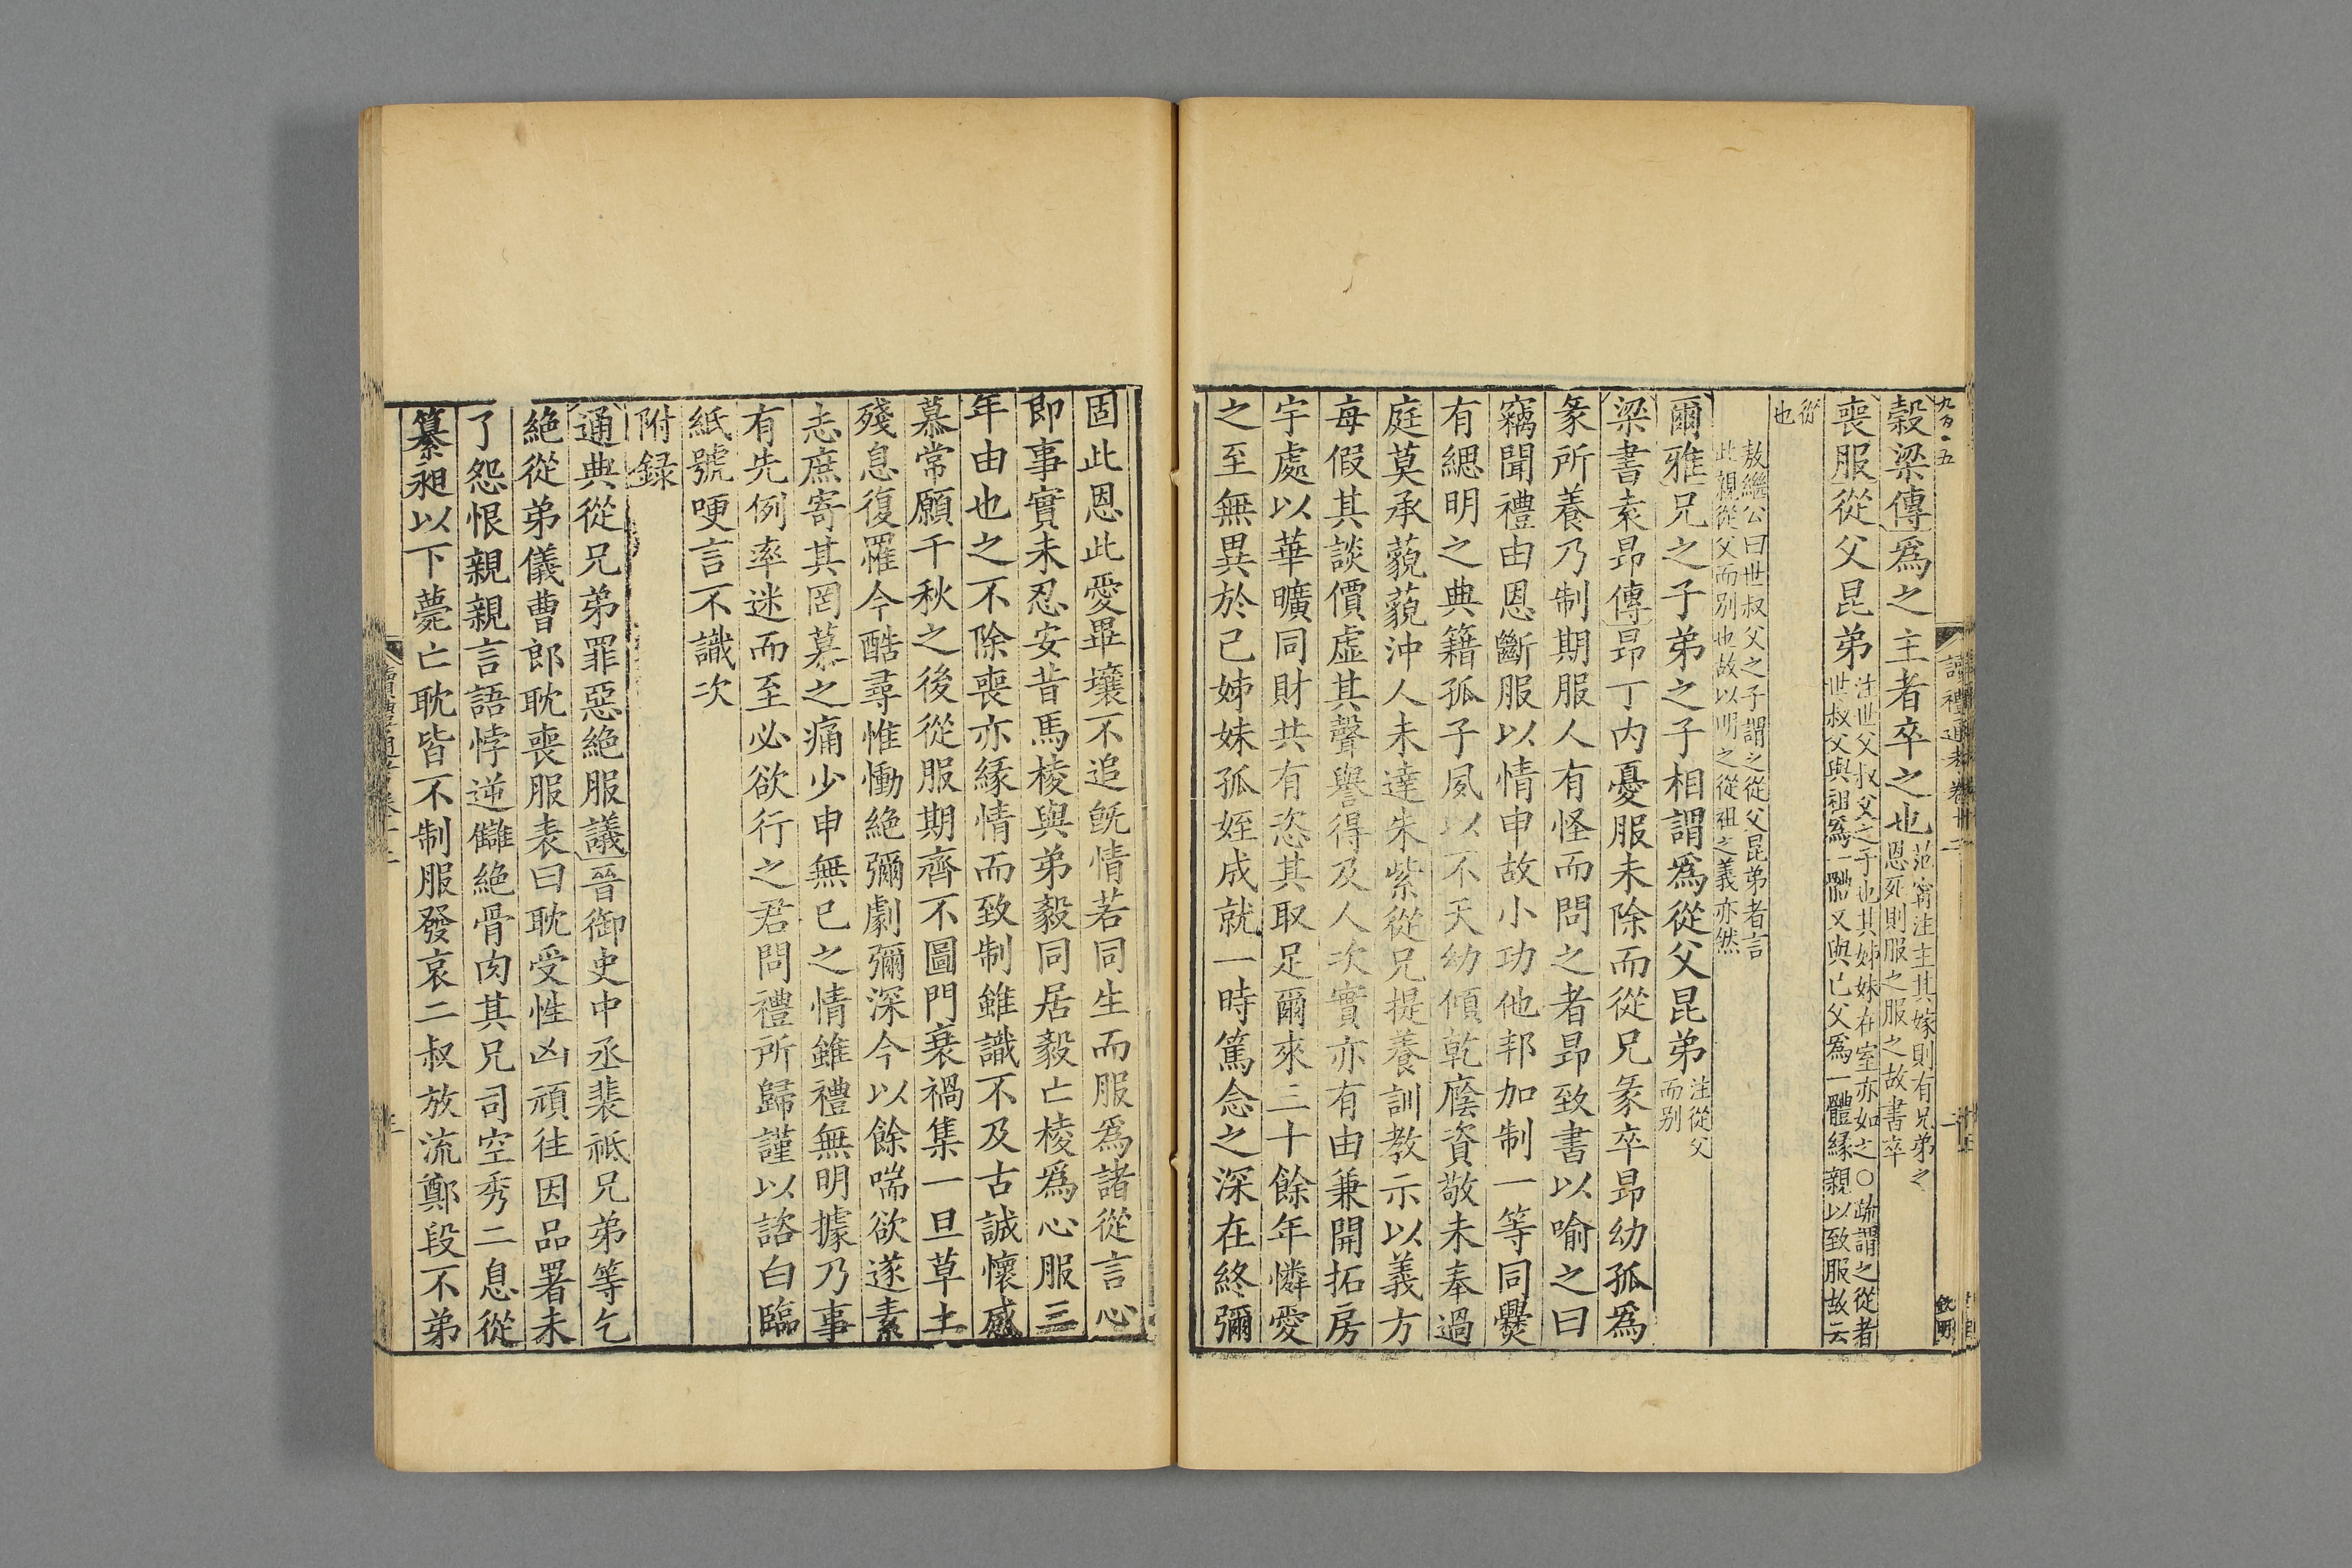 九百·五
讀禮通考卷廿二
欽明
穀梁傳爲之主者卒之也范甯注主其嫁則有兄弟之
恩死則服之服之故書卒
喪服從父昆弟注世父叔父之子也其姊妹在室亦如之○疏謂之從者
世叔父與祖爲一體又與己父爲一體緣親以致服故云
從
也
敖繼公曰世叔父之子謂之從父昆弟者言
此親從父而别也故以明之從祖之義亦然
爾雅兄之子弟之子相謂爲從父昆弟注從父
而别
梁書袁昂傳昂丁内憂服未除而從兄彖卒昂幼孤爲
彖所養乃制期服人有怪而問之者昂致書以喻之曰
竊聞禮由恩斷服以情申故小功他邦加制一等同爨
有緦明之典籍孤子夙以不天幼傾乾廕資敬未奉過
庭莫承藐藐沖人未達朱紫從兄提養訓教示以義方
每假其談價虛其聲譽得及人次實亦有由兼開拓房
宇處以華曠同財共有恣其取足爾來三十餘年憐愛
之至無異於己姊妹孤姪成就一時篤念之深在終彌
固此恩此愛畢壤不追旣情若同生而服爲諸從言心
即事實未忍安昔馬棱與弟毅同居毅亡棱爲心服三
年由也之不除喪亦緣情而致制雖識不及古誠懷感
慕常願千秋之後從服期齊不圖門衰禍集一旦草土
殘息復罹今酷尋惟慟絶彌劇彌深今以餘喘欲遂素
志庶寄其罔慕之痛少申無已之情雖禮無明據乃事
有先例率迷而至必欲行之君問禮所歸謹以諮白臨
紙號哽言不識次
附録
通典從兄弟罪惡絶服議晉御史中丞裴祗兄弟等乞
絶從弟儀曹郎耽喪服表曰耽受性凶頑往因品署未
了怨恨親親言語悖逆讎絶骨肉其兄司空秀二息從
纂昶以下薨亡耽皆不制服發哀二叔放流鄭段不弟